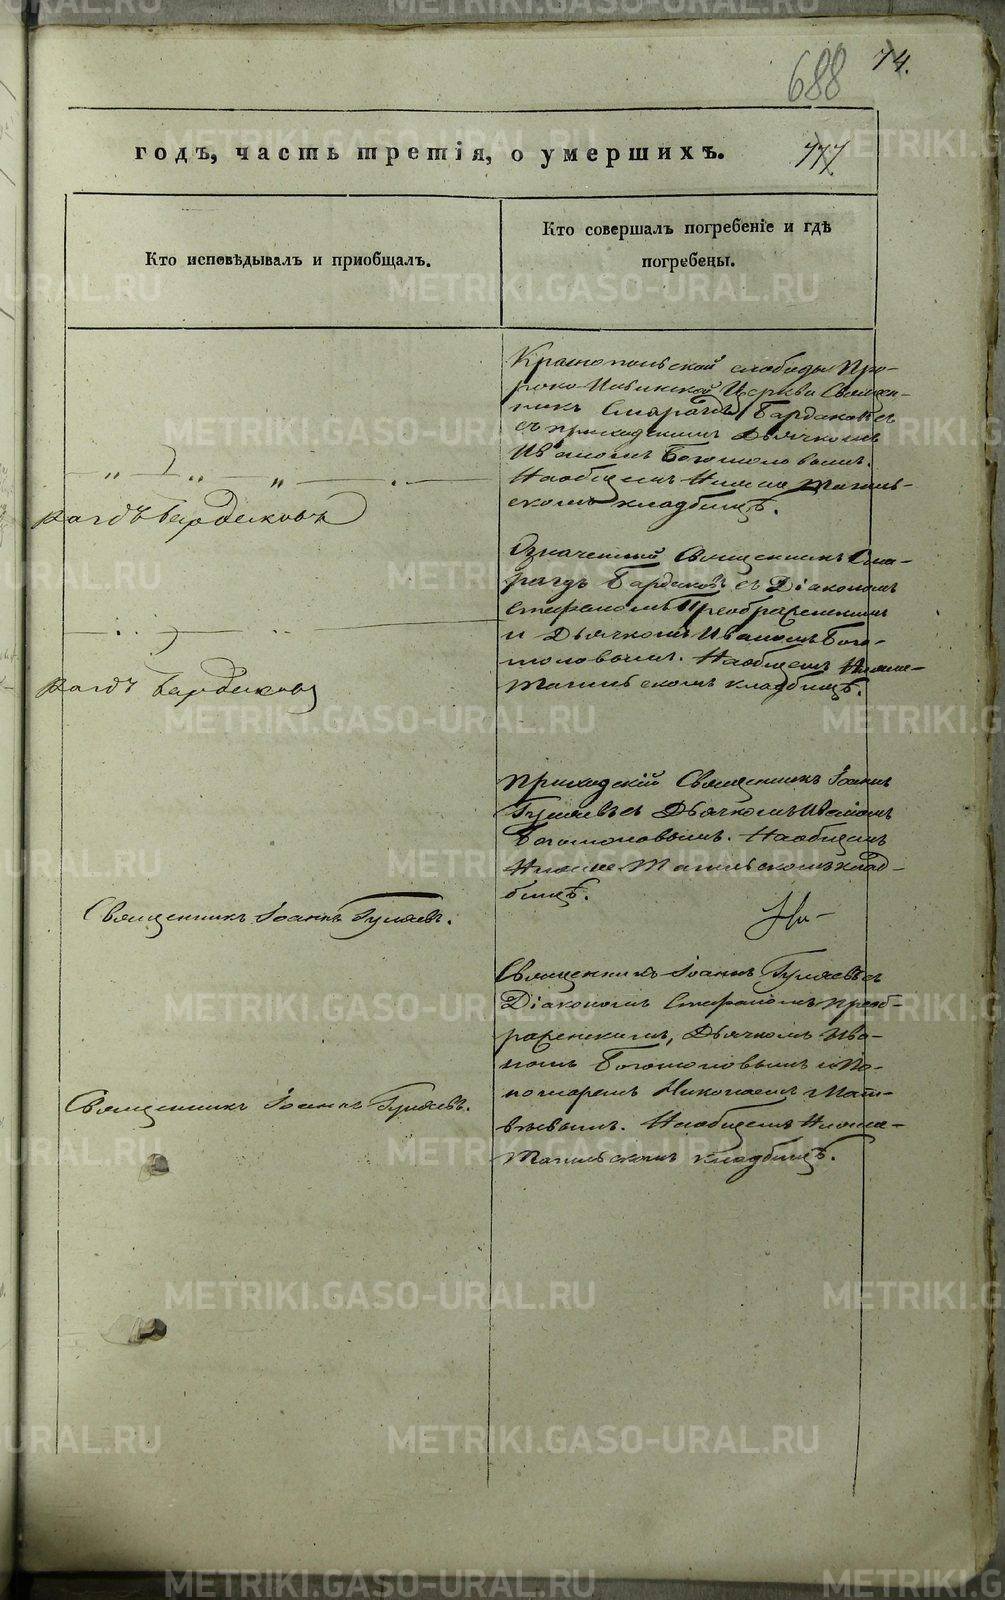 688 74.
годъ, часть третія, о умершихъ. 777
Кто исповѣдывалъ и пріобщалъ.
Кто совершалъ погребеніе и гдѣ
погребены.
Краснопольской слободы Про-
роко-Ильинской Церкви Священ-
никъ Смарагдъ Бардаковъ съ
съ приходскимъ Дьячкомъ
Иваномъ Богомоловымъ.
На общемъ Нижне Тагиль-
скомъ кладбищѣ.
рагдъ Бардаковъ
Означенный Священникъ Сма-
рагдъ Бардаковъ съ Діакономъ
Стефаномъ Преображенскимъ
и Дьячкомъ Иваномъ Бого-
моловымъ. На общемъ Нижне-
Тагильскомъ кладбищѣ.
рагдъ Бардаковъ
Приходскій Священникъ Іоаннъ
Гуляевъ съ Дьячкомъ Иваномъ
Богомоловымъ. На общемъ
Нижне-Тагильскомъ клад-
бищѣ.
Священникъ Іоаннъ Гуляевъ.
Священникъ Іоаннъ Гуляевъ съ
Діакономъ Стефаномъ Преоб-
раженскимъ, Дьячкомъ Ива-
номъ Богомоловымъ и По-
номаремъ Николаемъ Мат-
вѣевымъ. На общемъ Нижне-
Тагильскомъ кладбищѣ.
Священникъ Іоаннъ Гуляевъ.
METRIKI.GASO-URAL.RU